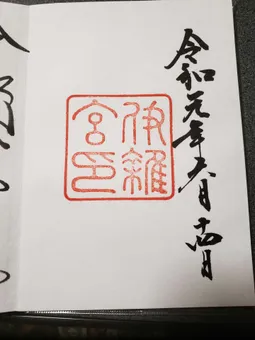 令和元年六月十四日
伊雜
宮印